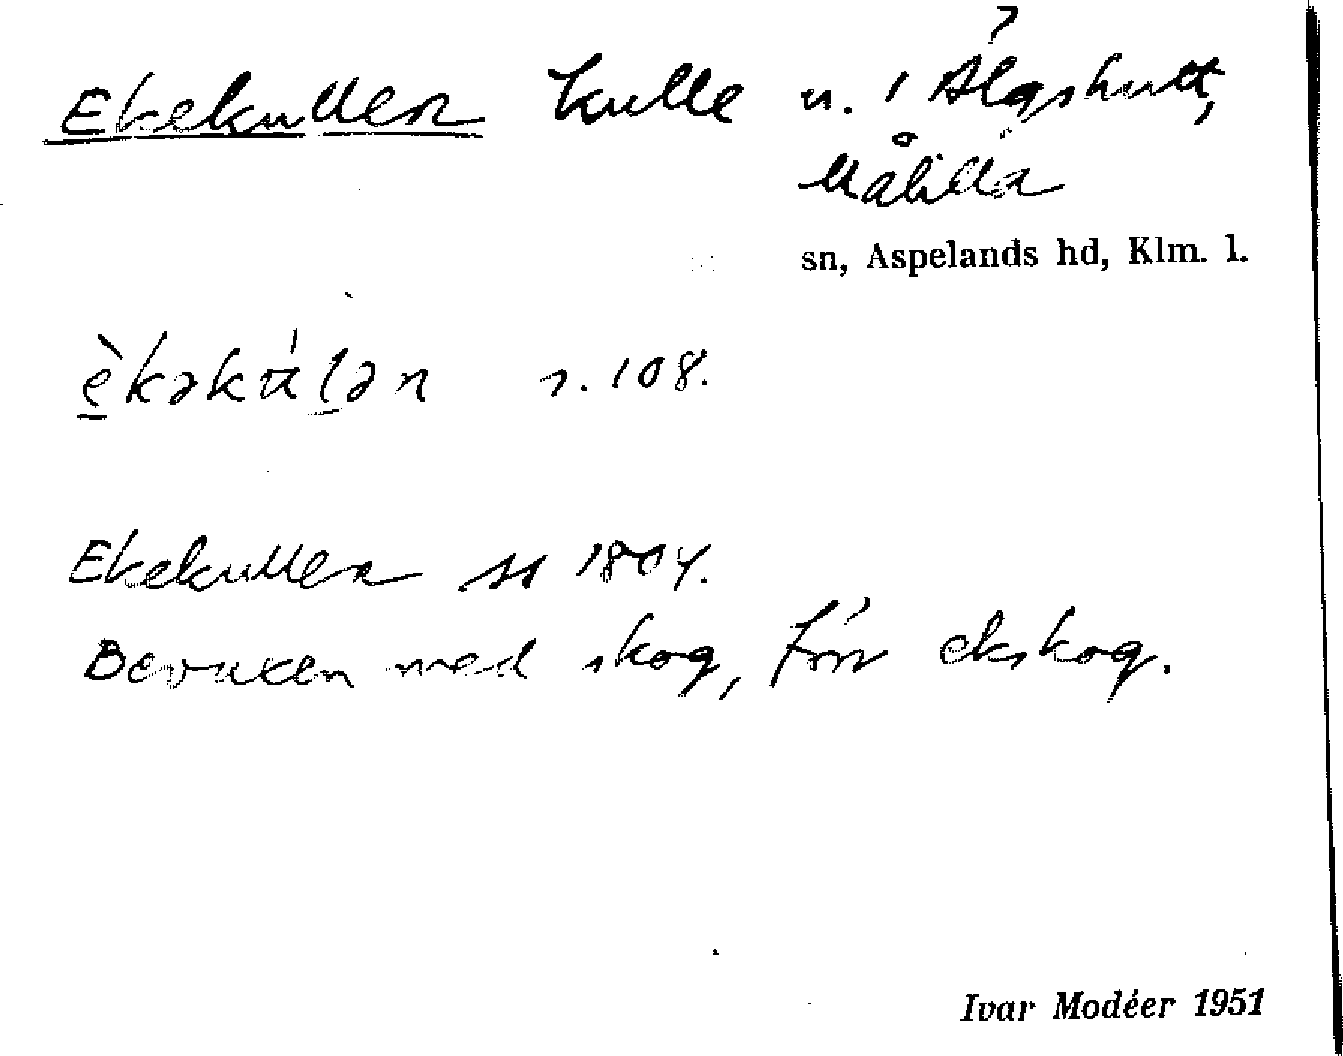 Ekekullen kulle u. 1 Älgshult,
Målilla
sn, Aspelands hd, Klm. l.
è̱kəkuḻən s. 108.
Ekekullen 1804.
Bevuxen med skog, förr ekskog.
Ivar Modéer 1951